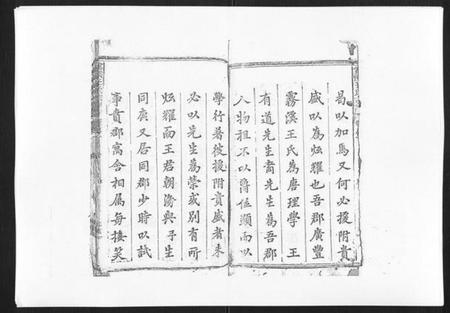 曷以加焉又何必援附貴
盛以為炫耀也吾郡廣豐
霧溪王氏為唐理學 王
有道先生裔先生為吾郡
人物祖不以爵位顯而以
學行著彼援附貴盛者未
必以先生為榮或別有所
炫耀而王君朝濤與予生
同庚又居同郡少時以試
事賁郡寓舍相屬每接笑